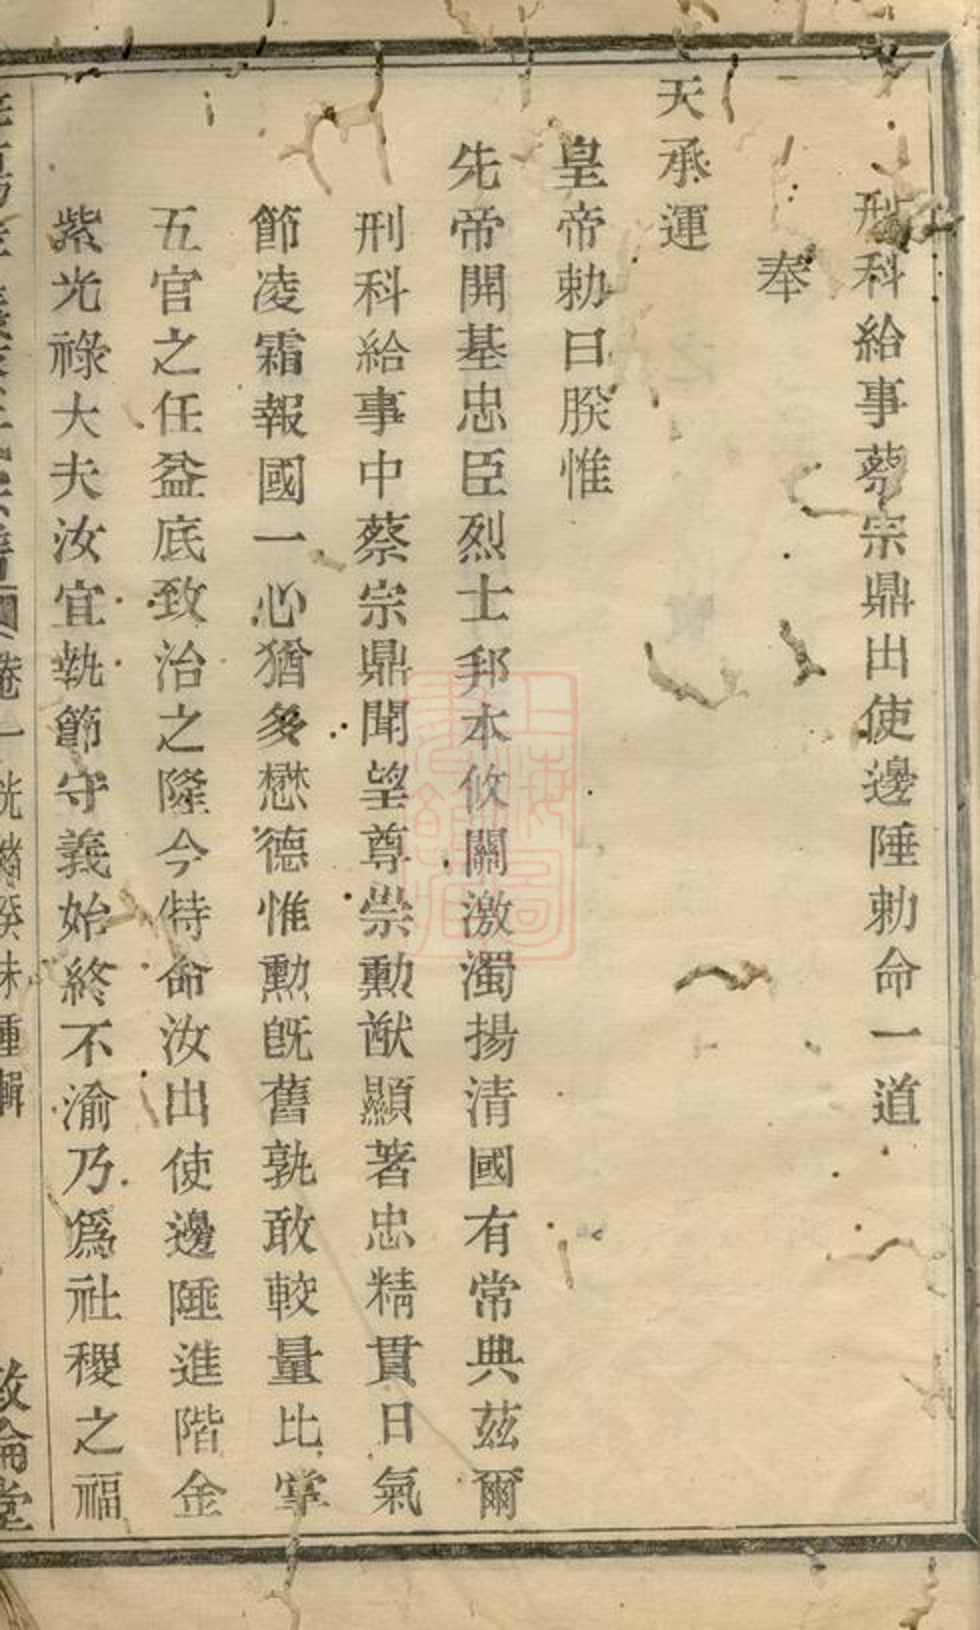 刑科給事蔡宗鼎出使邊陲勅命一道
奉
天承運
皇帝勅曰朕惟
先帝開基忠臣烈士邦本攸關激濁揚清國有常典茲爾
刑科給事中蔡宗鼎聞望尊崇勳猷顯著忠精貫日氣
節凌霜報國一心猶多懋德惟勳旣舊孰敢較量比掌
五官之任益底致治之隆今特命汝出使邊陲進階金
紫光祿大夫汝宜執節守義始終不渝乃爲社稷之福
卷一
光緒癸未重輯
敦倫堂
上海圖書館藏